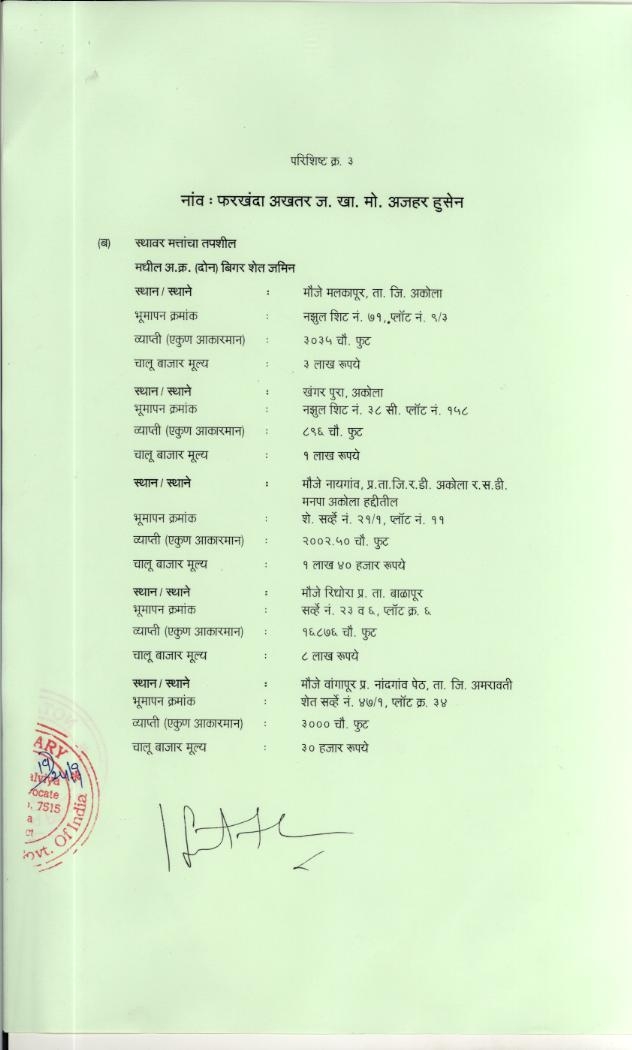 परिशिष्ट क्र. ३
नांव : फरखंदा अखतर ज. खा. मो. अजहर हुसेन
(ब) स्थावर मत्तांचा तपशील
मधील अ.क्र. (दोन) बिगर शेत जमिन
स्थान / स्थाने : मौजे मलकापूर, ता. जि. अकोला
भूमापन क्रमांक : नझुल शिट नं. ७१, प्लॉट नं. ९/३
व्याप्ती (एकुण आकारमान) : ३०३५ चौ. फुट
चालू बाजार मूल्य : ३ लाख रूपये
स्थान / स्थाने : खंगर पुरा, अकोला
भूमापन क्रमांक : नझुल शिट नं. ३८ सी. प्लॉट नं. १५८
व्याप्ती (एकुण आकारमान) : ८९६ चौ. फुट
चालू बाजार मूल्य : १ लाख रूपये
स्थान / स्थाने : मौजे नायगांव, प्र.ता.जि.र.डी. अकोला र.स.डी.
मनपा अकोला हद्दीतील
भूमापन क्रमांक : शे. सर्व्हे नं. २१/१, प्लॉट नं. ११
व्याप्ती (एकुण आकारमान) : २००२.५० चौ. फुट
चालू बाजार मूल्य : १ लाख ४० हजार रूपये
स्थान / स्थाने : मौजे रिधोरा प्र. ता. बाळापूर
भूमापन क्रमांक : सर्व्हे नं. २३ व ६, प्लॉट क्र. ६
व्याप्ती (एकुण आकारमान) : १६८७६ चौ. फुट
चालू बाजार मूल्य : ८ लाख रूपये
स्थान / स्थाने : मौजे वांगापूर प्र. नांदगांव पेठ, ता. जि. अमरावती
भूमापन क्रमांक : शेत सर्व्हे नं. ४७/१, प्लॉट क्र. ३४
व्याप्ती (एकुण आकारमान) : ३००० चौ. फुट
चालू बाजार मूल्य : ३० हजार रूपये
ARY
ocate
7515
ovt. Of India